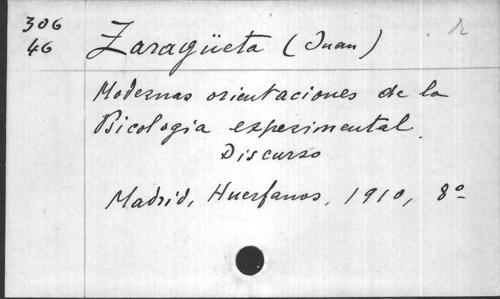 306
46
Zaragüeta (Juan)
Modernas orientaciones de la
Psicologia experimental.
Discurso
Madrid, Huerfanos, 1910, 8º